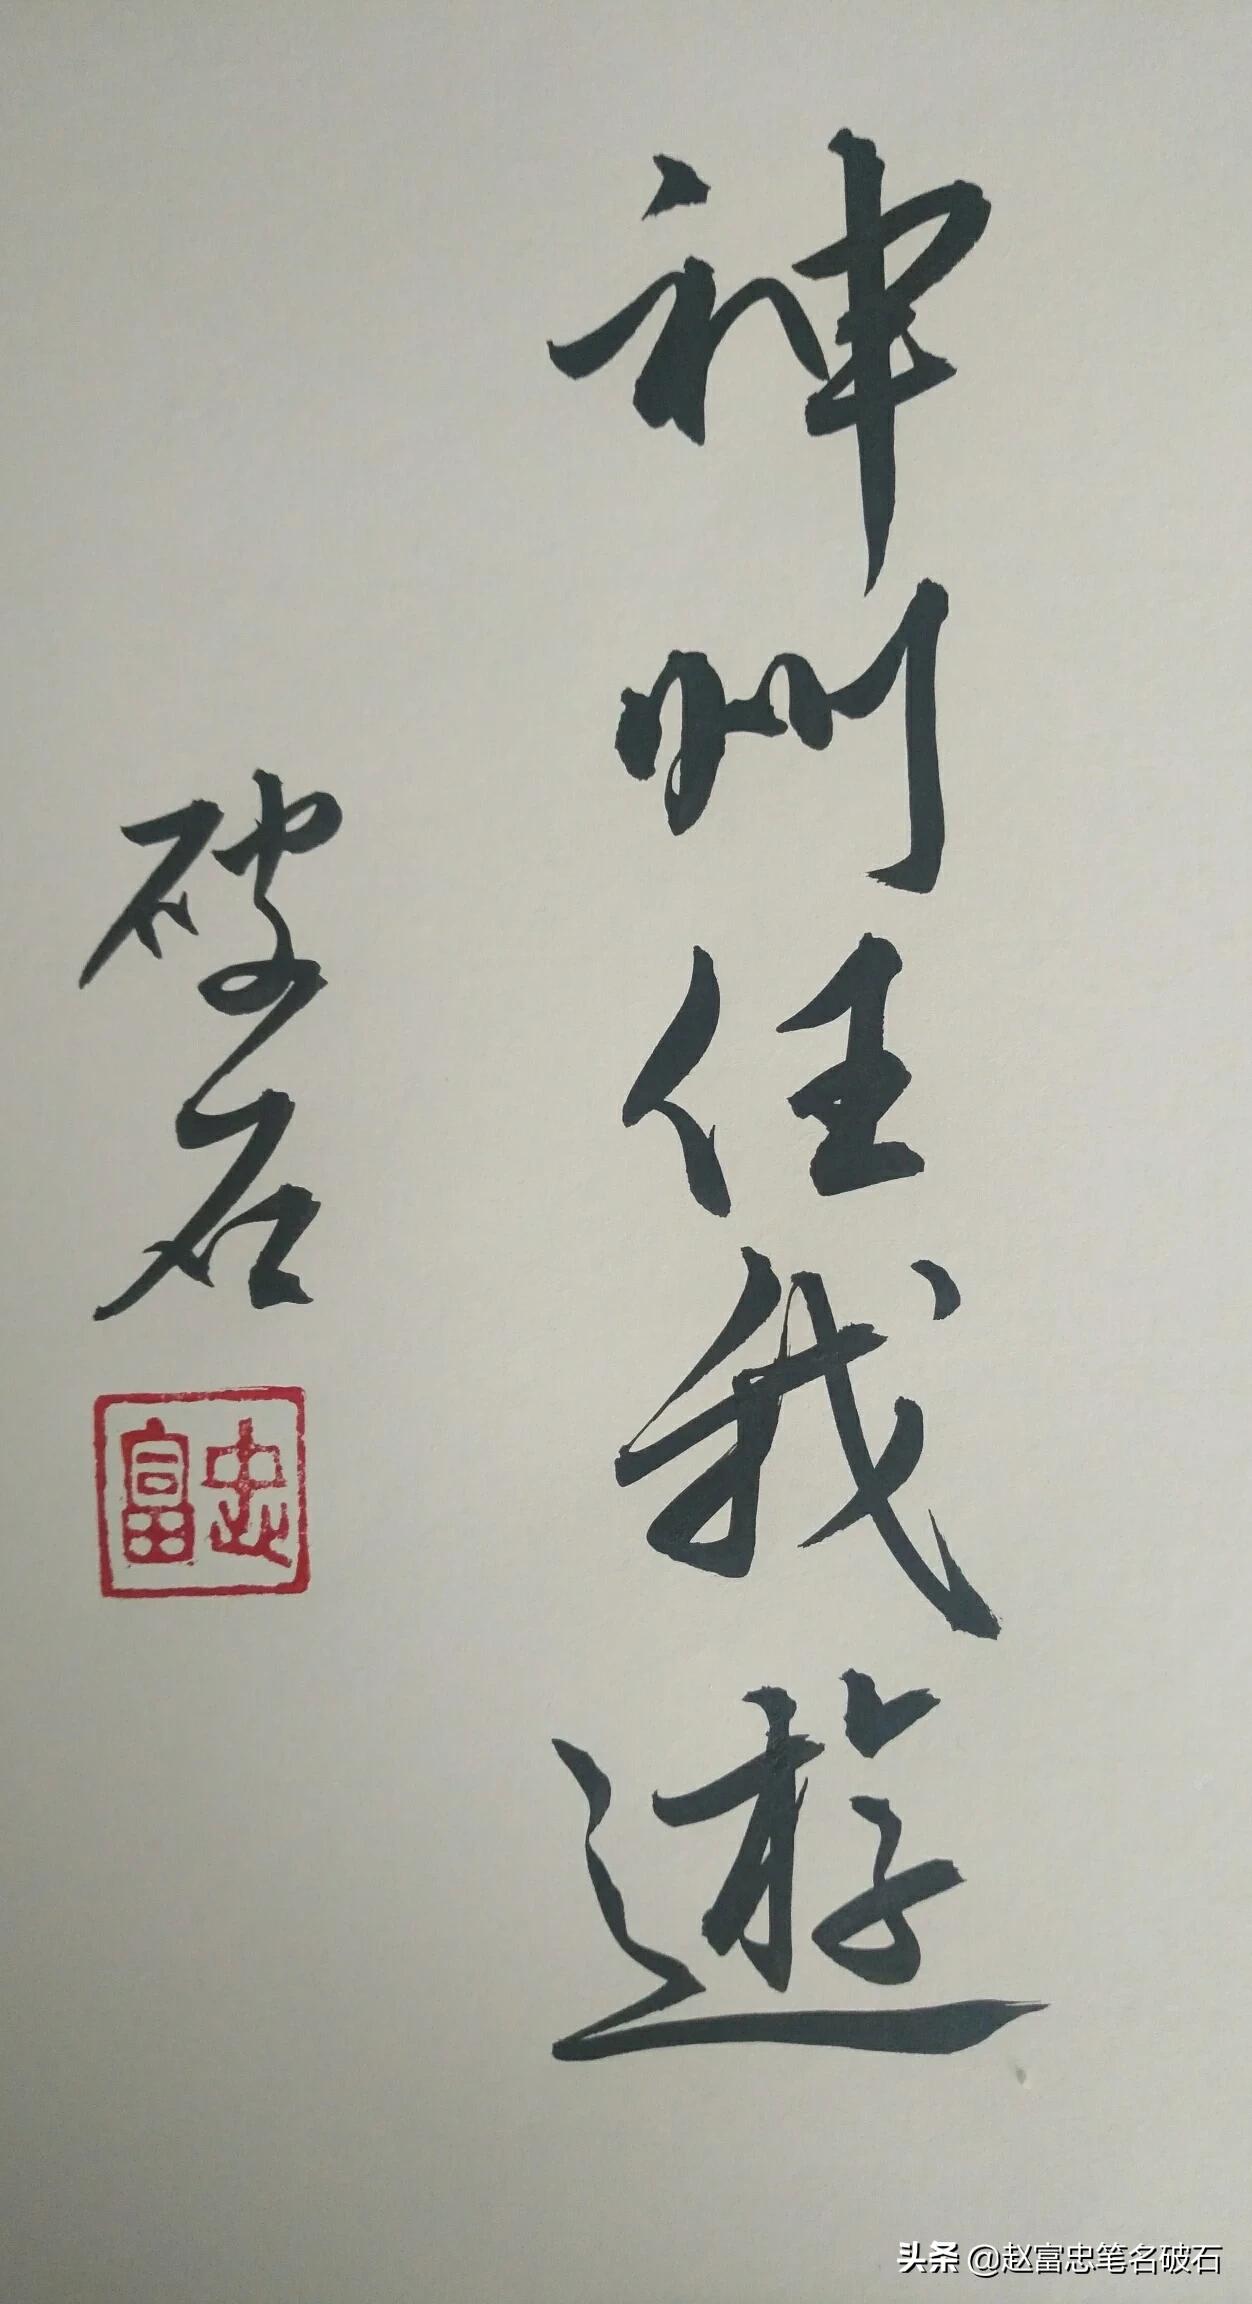 神州任我遊
破石
富忠
头条 @赵富忠笔名破石